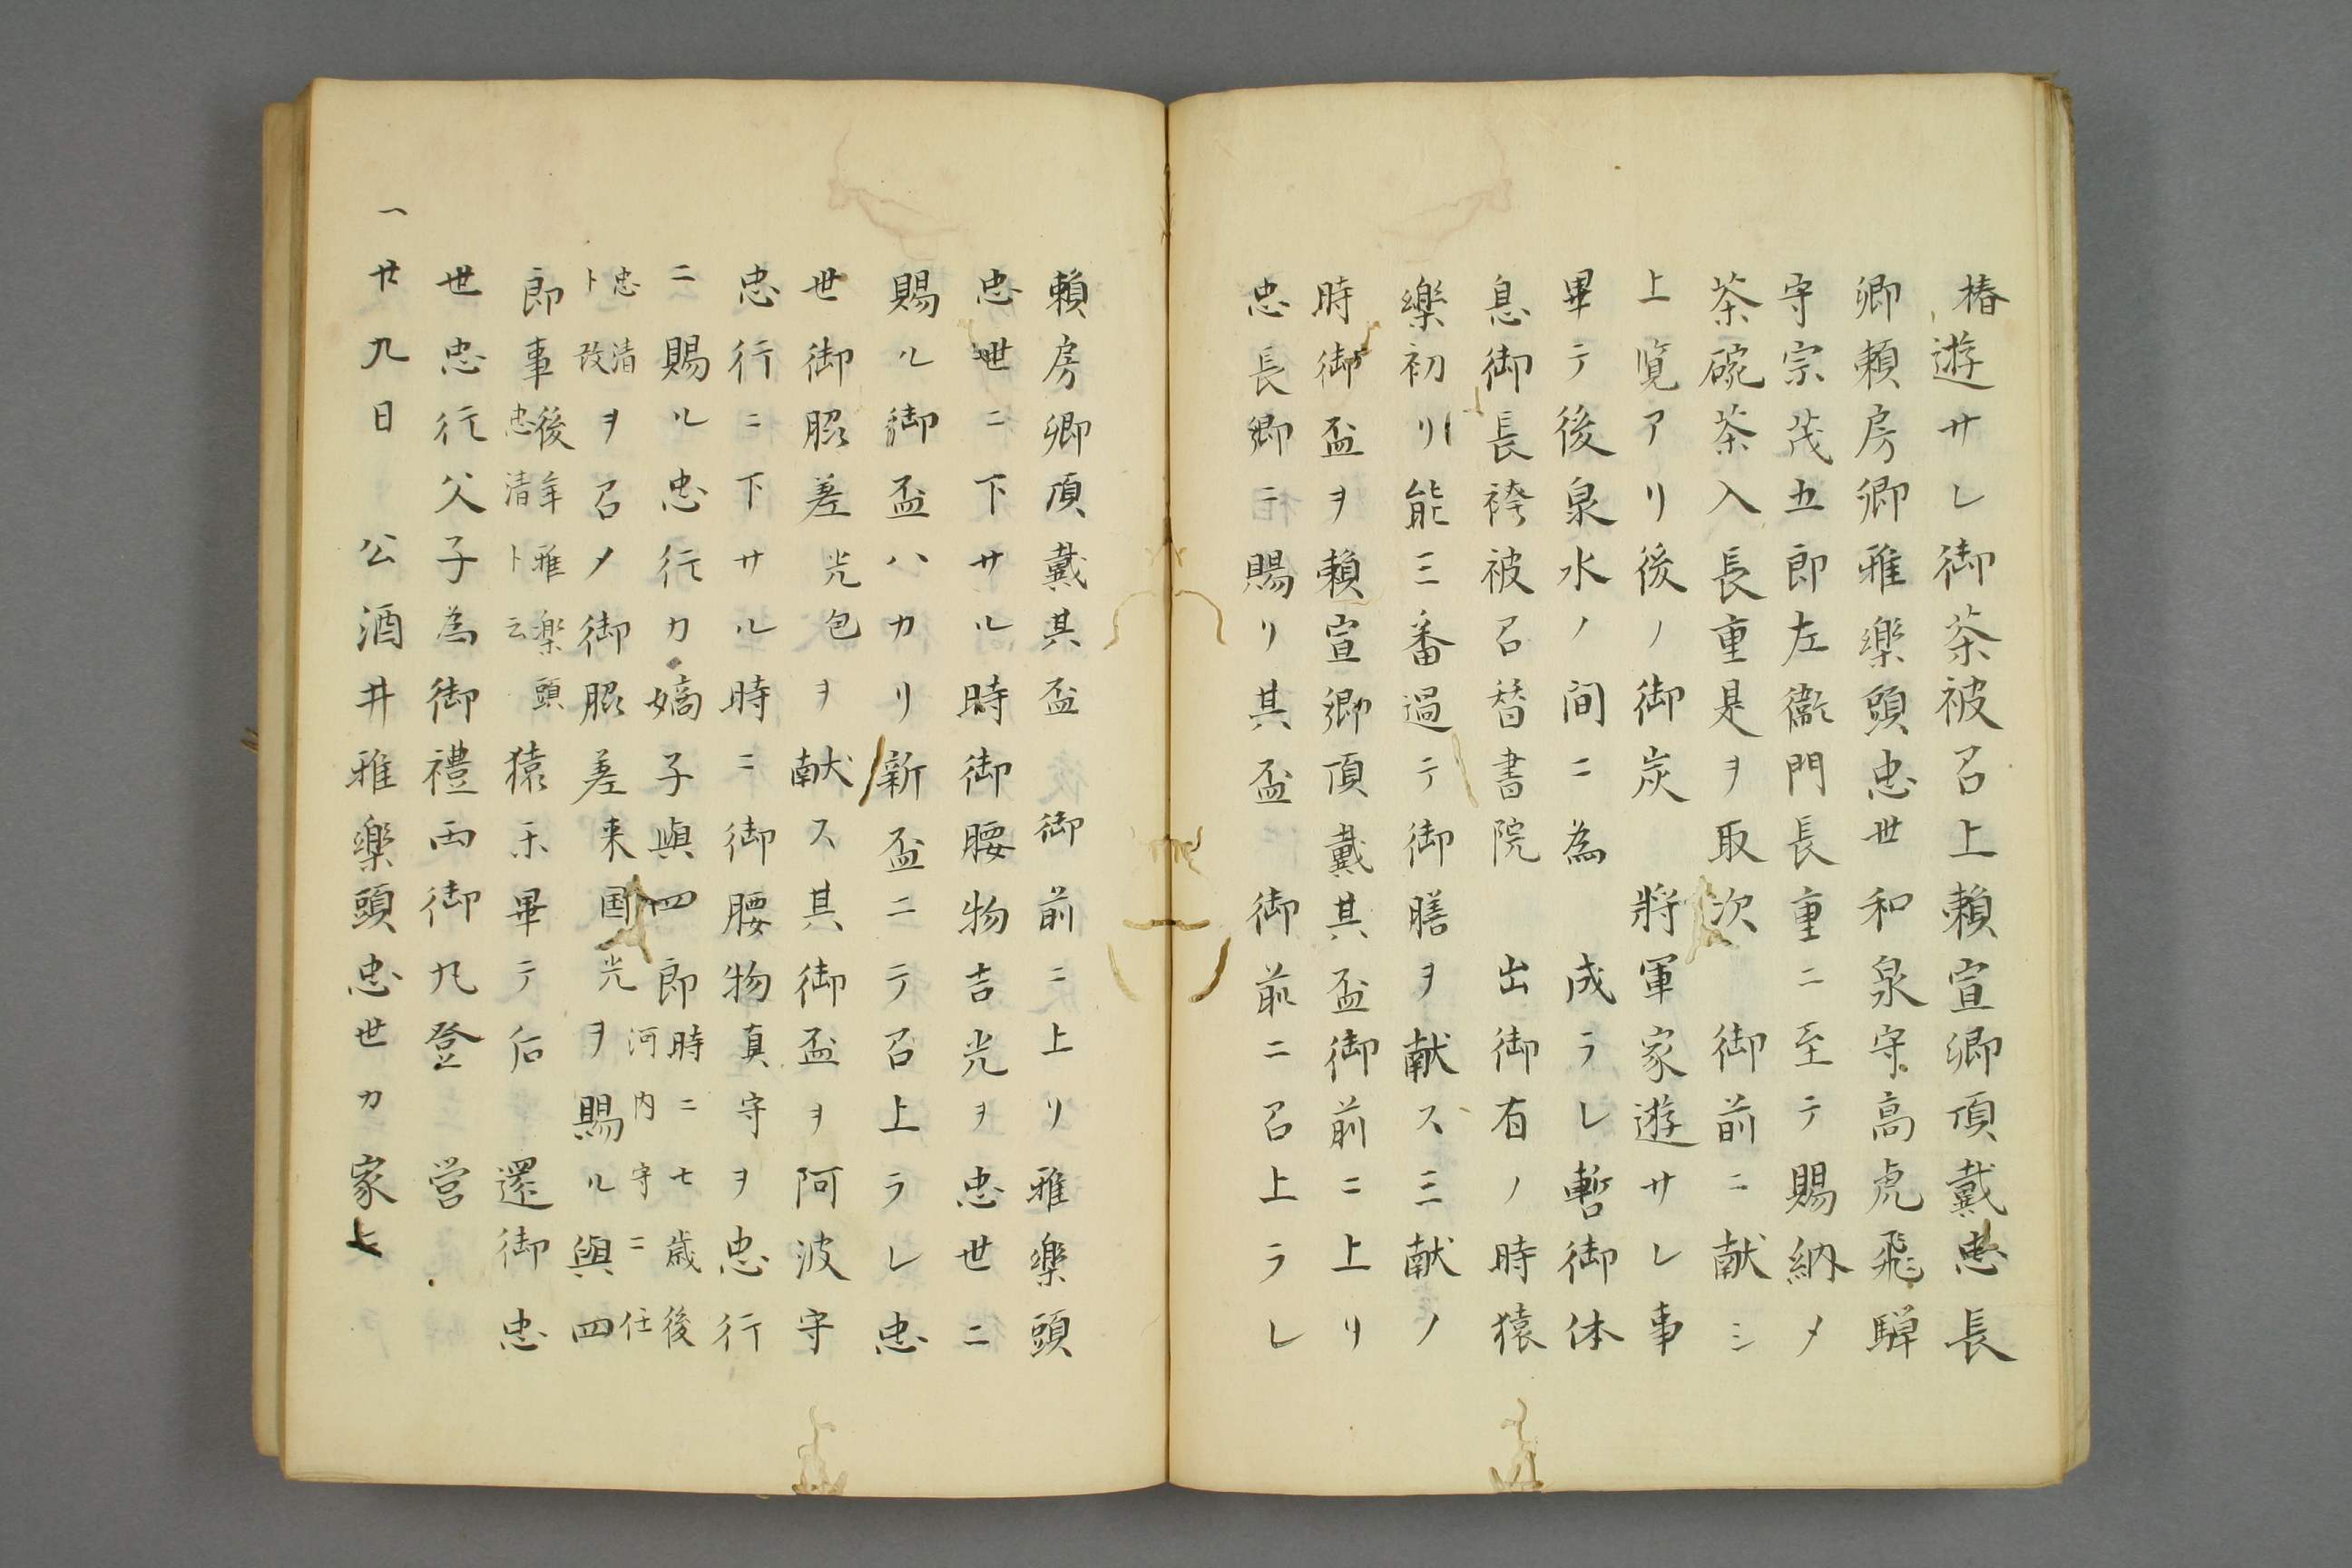 椿遊サレ御茶被召上頼宣卿頂戴忠長
卿頼房卿雅樂頭忠世和泉守高虎飛騨
守宗茂五郎左衞門長重ニ至テ賜納メ
茶碗茶入長重是ヲ取次　御前ニ献シ
上覧アリ後ノ御炭　將軍家遊サレ事
畢テ後泉水ノ間ニ為　成ラレ暫御休
息御長袴被召替書院　出御有ノ時猿
樂初リ能三番過テ御膳ヲ献ス三献ノ
時御盃ヲ頼宣卿頂戴其盃御前ニ上リ
忠長卿ニ賜リ其盃　御前ニ召上ラレ
頼房卿頂戴其盃　御前ニ上リ雅樂頭
忠世ニ下サル時御腰物吉光ヲ忠世ニ
賜ル御盃ハカリ新盃ニテ召上ラレ忠
世御脇差光包ヲ献ス其御盃ヲ阿波守
忠行ニ下サル時ニ御腰物真守ヲ忠行
ニ賜ル忠行カ嫡子與四郎時ニ七歳後
河内守ニ任
忠清
ト改ヲ召メ御脇差来国光ヲ賜ル與四
郎事後年雅樂頭
忠清ト云猿禾畢テ后　還御忠
世忠行父子為御禮西御丸登　営
一廿九日　公酒井雅樂頭忠世カ家ヒ